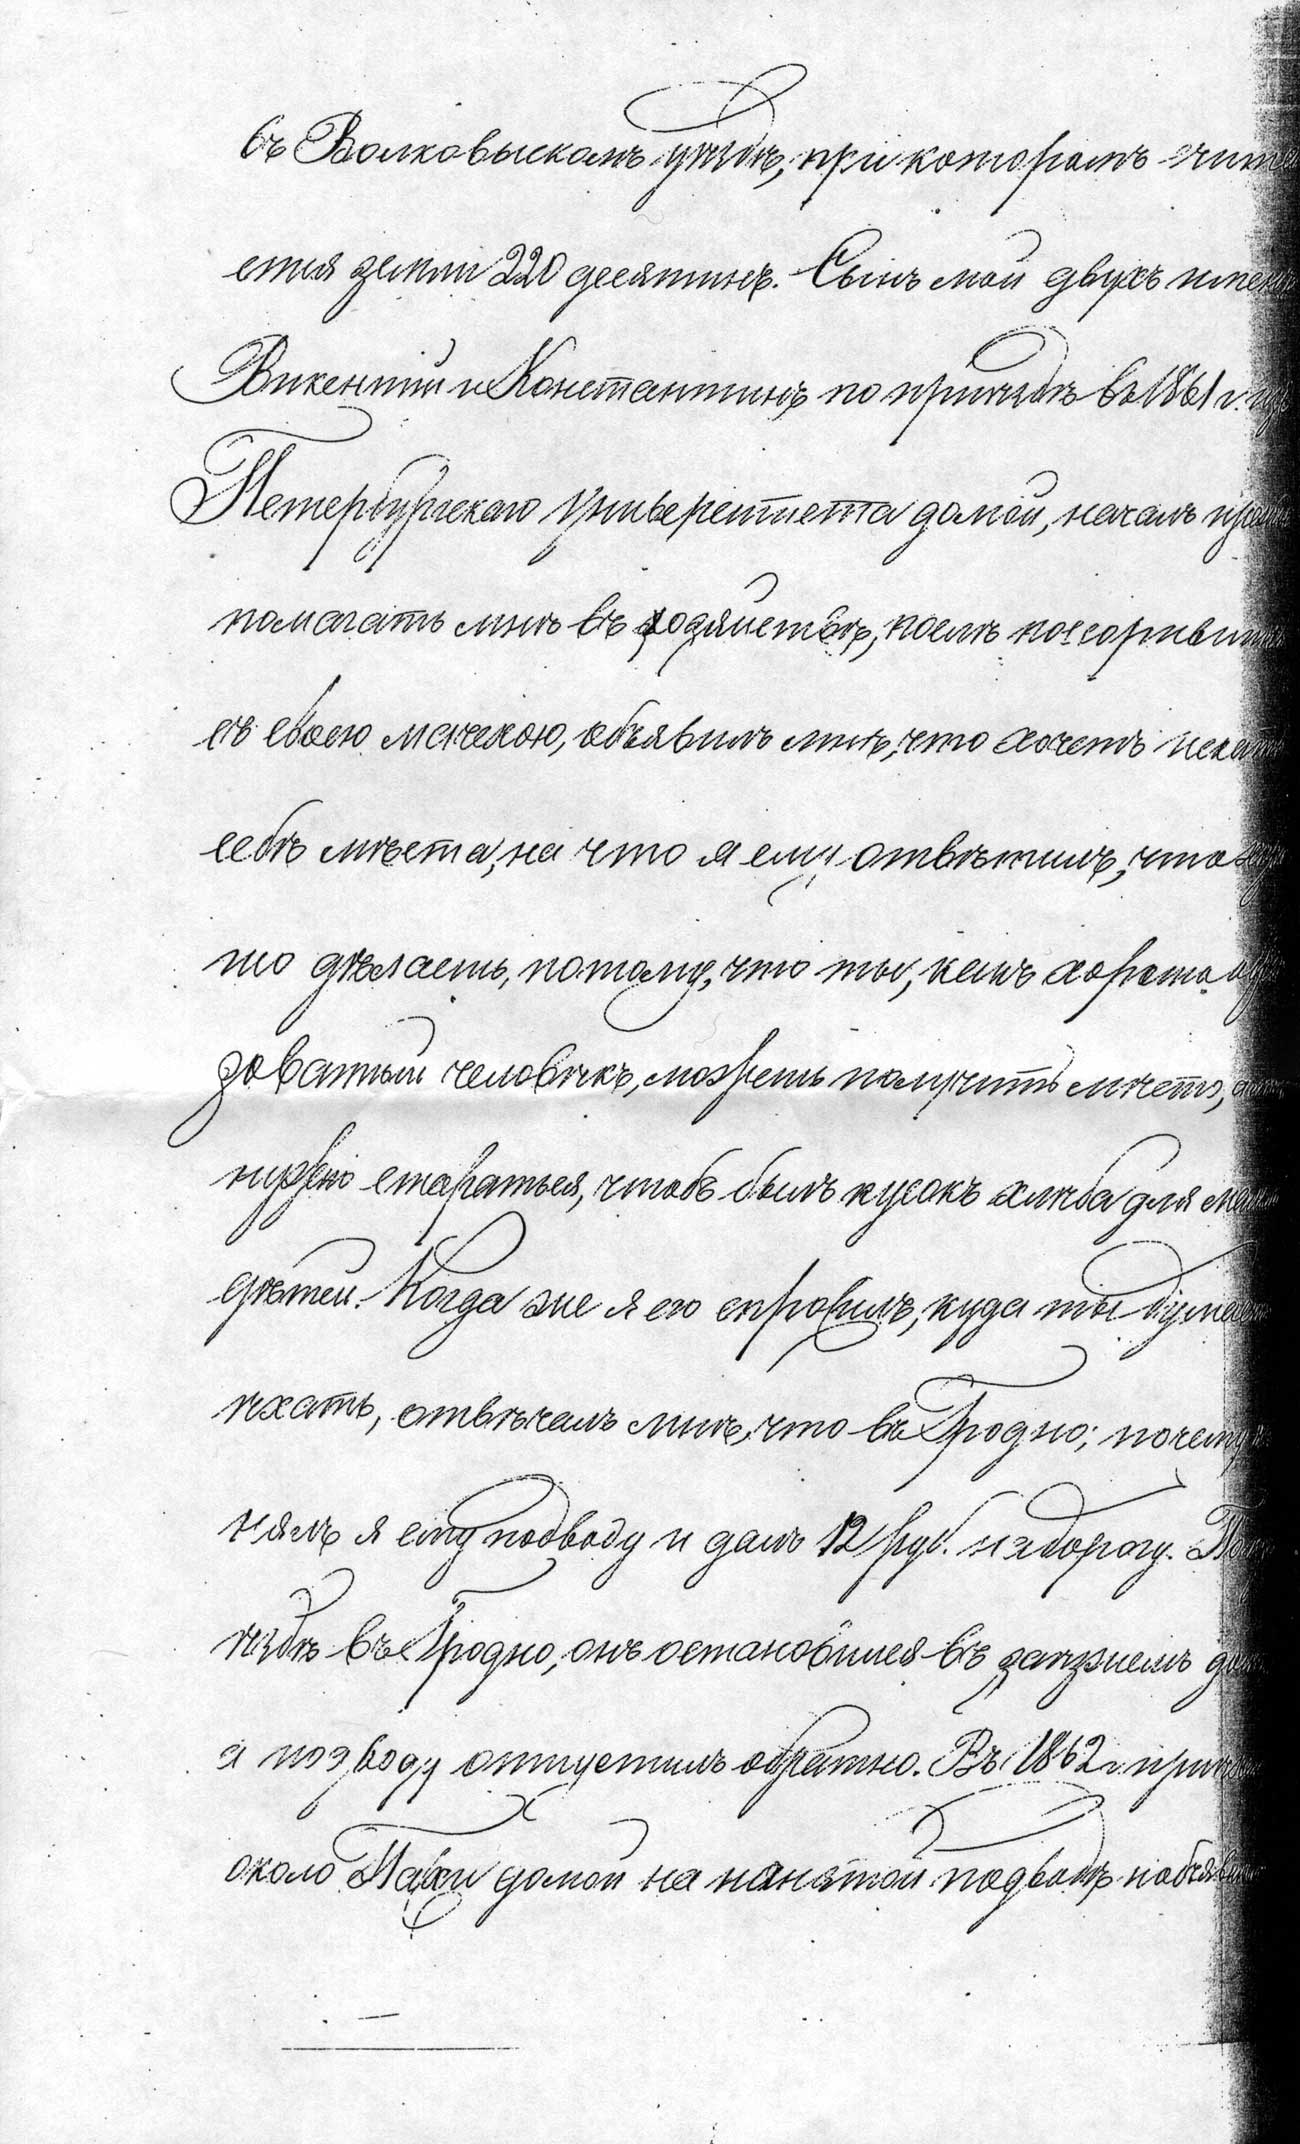 въ Волковыскомъ уѣздѣ, при которомъ считa
ется земли 220 десятинъ. Сынъ мой двухъ именъ
Викентій и Константинъ по пріѣздѣ въ 1861 г. изъ
Петербургскаго Университета домой, началъ
помагать мнѣ въ хозяйствѣ, послѣ поссорившись
съ своею мачехою, объявилъ мнѣ, что хочетъ искать
себѣ мѣста, на что я ему отвѣтилъ, что
шо дѣлаешь, потому, что ты, какъ хорошо обра
зованный человѣкъ, можешь получить мѣсто, а
нужно стараться, чтобъ былъ кусокъ хлѣба для малых
дѣтей. Когда же я его спросилъ, куда ты думаешь
ѣхать, отвѣчалъ мнѣ, что въ Гродно; почему на
нялъ я ему подводу и далъ 12 руб. на дорогу. По
ѣздѣ въ Гродно, онъ остановился въ заѣзжемъ домѣ
а подводу отпустилъ обратно. Въ 1862 г. пріѣхалъ
около Пасхи домой на нанятой подводѣ и объявилъ